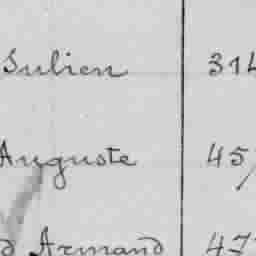 Julien 314
Auguste 45
d Armand 47